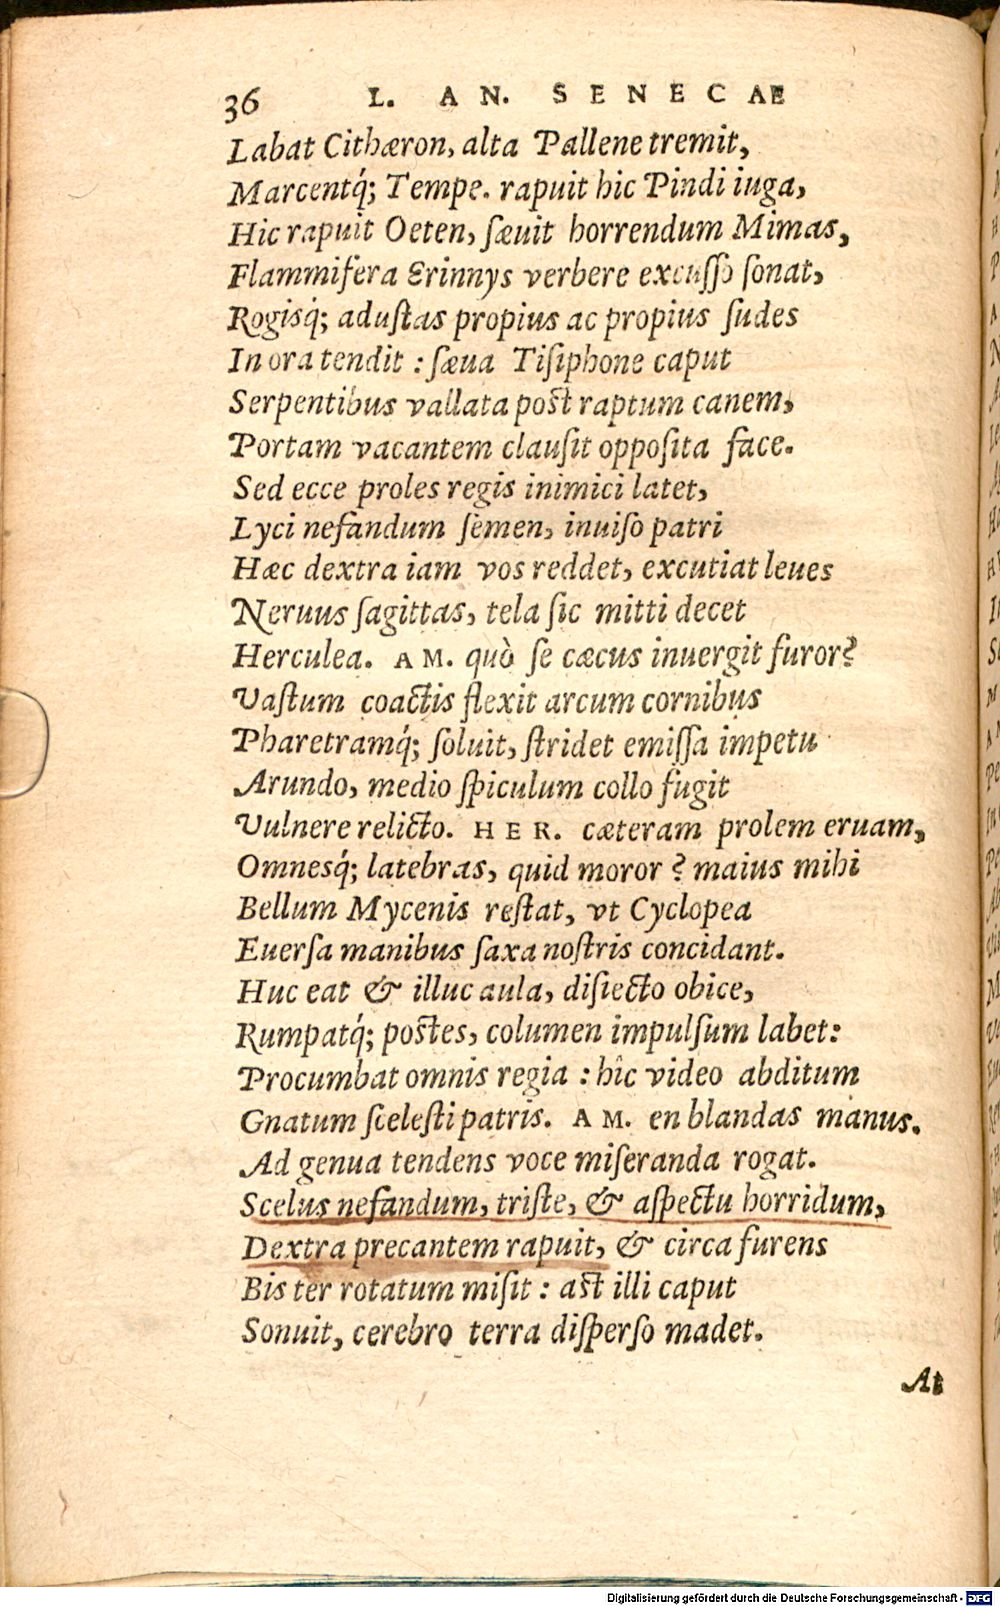 36 L. AN. SENECAE
Labat Cithæron, alta Pallene tremit,
Marcentq́; Tempe. rapuit hic Pindi iuga,
Hic rapuit Oeten, sæuit horrendum Mimas,
Flammifera Erinnys verbere excusso sonat,
Rogisq́; adustas propius ac propius sudes
In ora tendit : sæua Tisiphone caput
Serpentibus vallata post raptum canem,
Portam vacantem clausit opposita face.
Sed ecce proles regis inimici latet,
Lyci nefandum semen, inuiso patri
Hæc dextra iam vos reddet, excutiat leues
Neruus sagittas, tela sic mitti decet
Herculea. AM. quò se cæcus inuergit furor?
Vastum coactis flexit arcum cornibus
Pharetramq́; soluit, stridet emissa impetu
Arundo, medio spiculum collo fugit
Vulnere relicto. HER. cæteram prolem eruam,
Omnesq́; latebras, quid moror ? maius mihi
Bellum Mycenis restat, vt Cyclopea
Euersa manibus saxa nostris concidant.
Huc eat & illuc aula, disiecto obice,
Rumpatq́; postes, columen impulsum labet:
Procumbat omnis regia : hîc video abditum
Gnatum scelesti patris. AM. en blandas manus.
Ad genua tendens voce miseranda rogat.
Scelus nefandum, triste, & aspectu horridum,
Dextra precantem rapuit, & circa furens
Bis ter rotatum misit : ast illi caput
Sonuit, cerebro terra disperso madet.
At
Digitalisierung gefördert durch die Deutsche Forschungsgemeinschaft - DFG